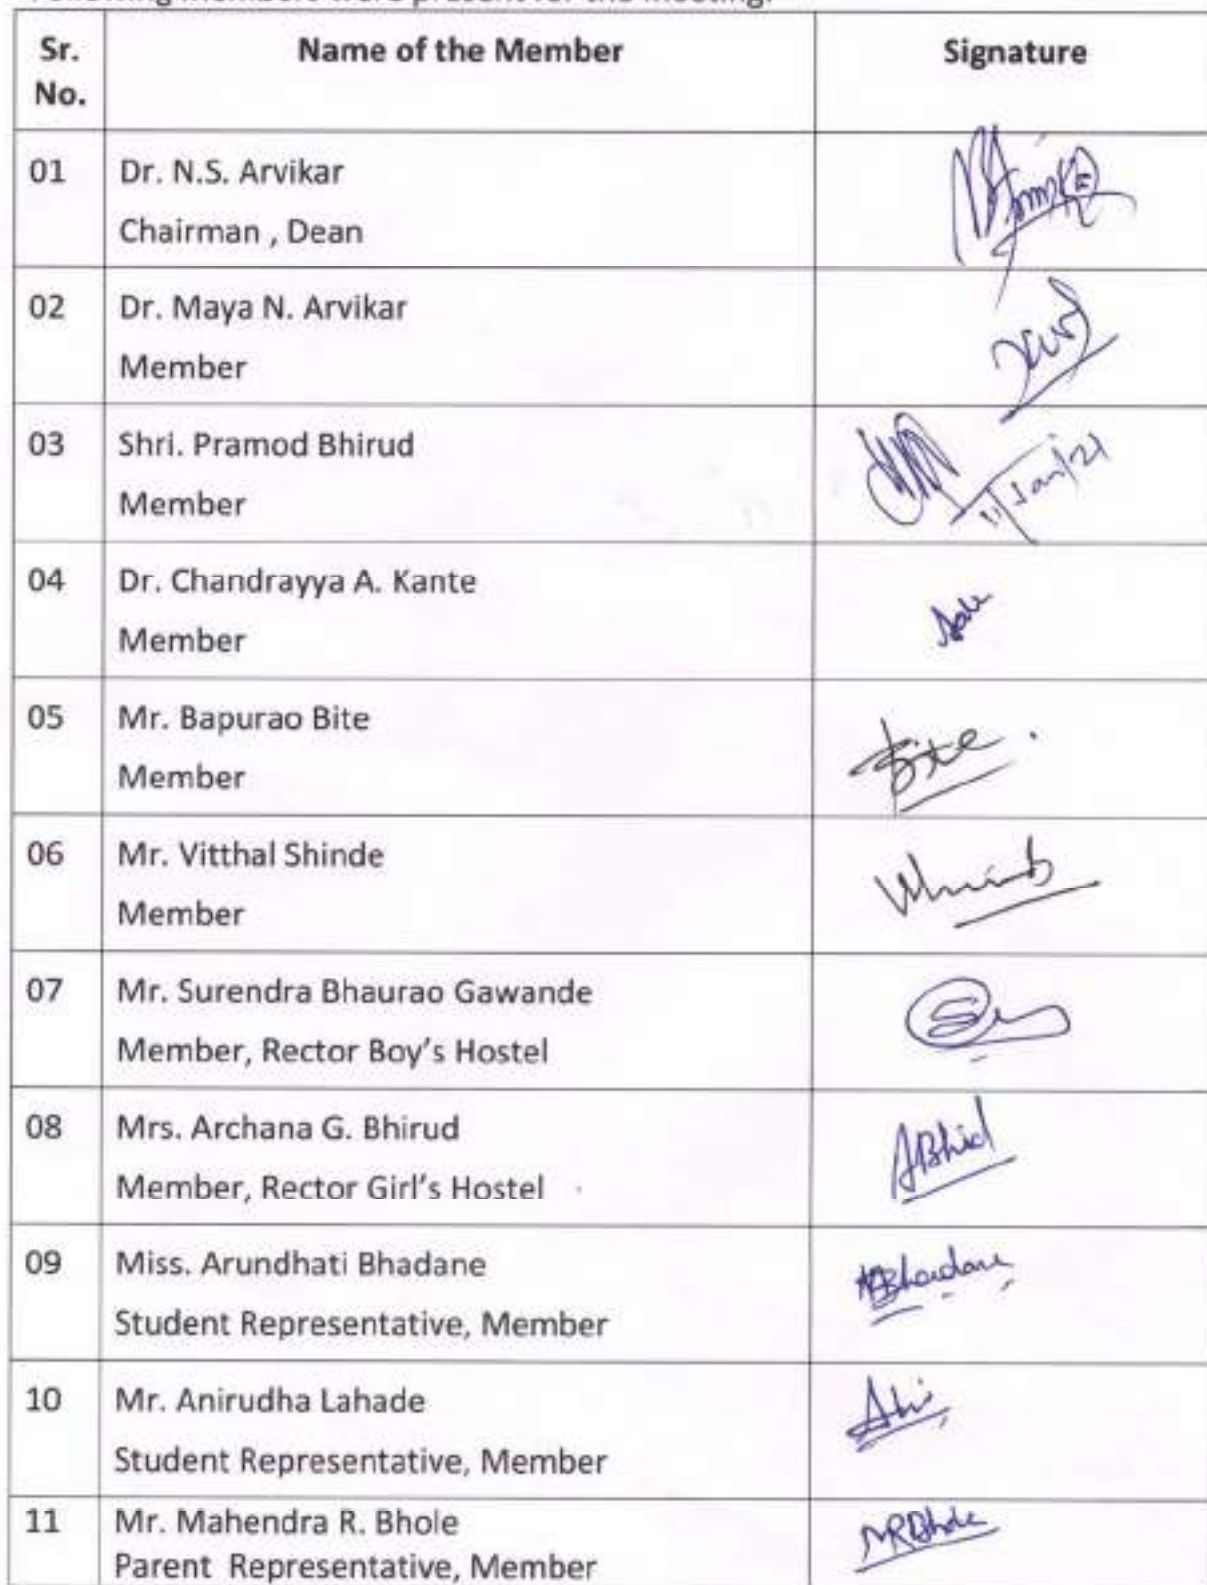 Following members were present for the meeting.
Sr. No. Name of the Member Signature
01 Dr. N.S. Arvikar
Chairman , Dean
02 Dr. Maya N. Arvikar
Member
03 Shri. Pramod Bhirud
Member 11/Jan/21
04 Dr. Chandrayya A. Kante
Member
05 Mr. Bapurao Bite Bite
Member
06 Mr. Vitthal Shinde
Member
07 Mr. Surendra Bhaurao Gawande
Member, Rector Boy's Hostel
08 Mrs. Archana G. Bhirud
Member, Rector Girl's Hostel
09 Miss. Arundhati Bhadane ABhadane
Student Representative, Member
10 Mr. Anirudha Lahade
Student Representative, Member
11 Mr. Mahendra R. Bhole MRBhole
Parent Representative, Member